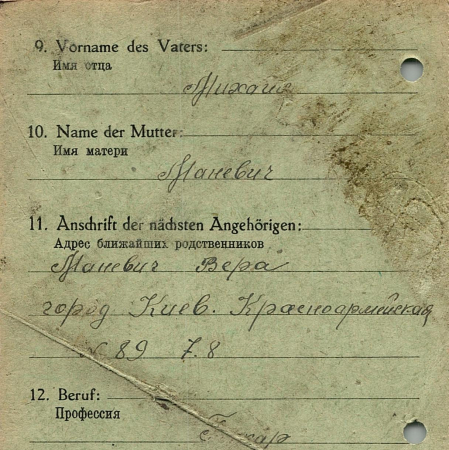 9. Vorname des Vaters:
Имя отца
Михаил
10. Name der Mutter:
Имя матери
Маневич
11. Anschrift der nächsten Angehörigen:
Адрес ближайших родственников
Маневич Вера
город Киев. Красноармейская
№ 89 7.8
12. Beruf:
Профессия